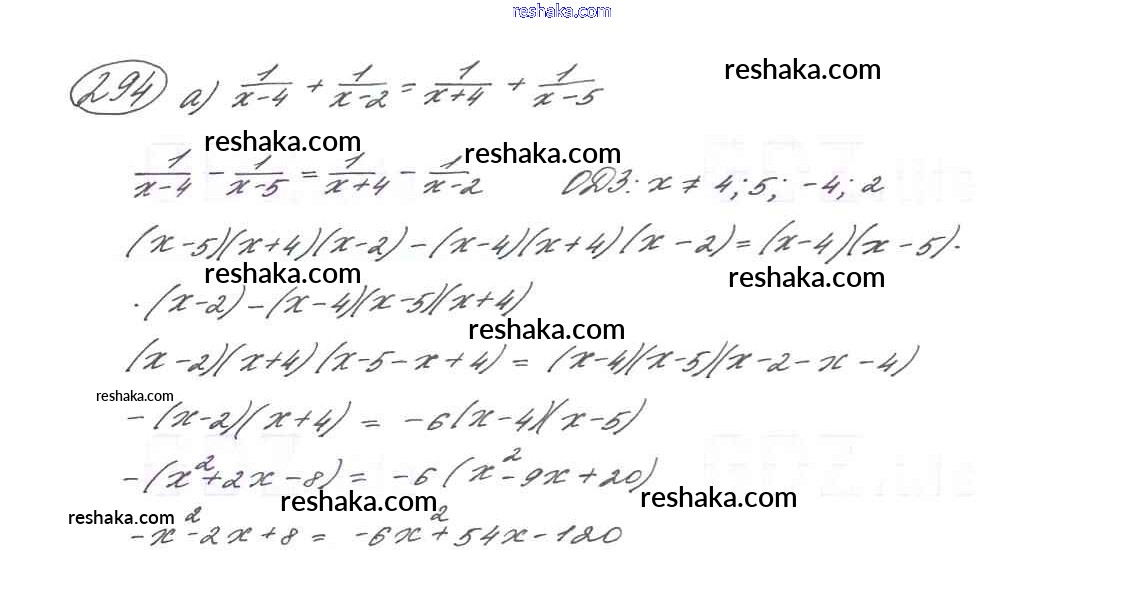 reshaka.com
294 а) 1/(x-4) + 1/(x-2) = 1/(x+4) + 1/(x-5)
reshaka.com
reshaka.com
reshaka.com
1/(x-4) - 1/(x-5) = 1/(x+4) - 1/(x-2) ОДЗ: x ≠ 4; 5; -4; 2
(x-5)(x+4)(x-2)-(x-4)(x+4)(x-2)=(x-4)(x-5)·
reshaka.com
reshaka.com
·(x-2)-(x-4)(x-5)(x+4)
reshaka.com
(x-2)(x+4)(x-5-x+4)=(x-4)(x-5)(x-2-x-4)
reshaka.com
-(x-2)(x+4) = -6(x-4)(x-5)
-(x²+2x-8) = -6(x²-9x+20)
reshaka.com
reshaka.com
reshaka.com
-x²-2x+8 = -6x²+54x-120